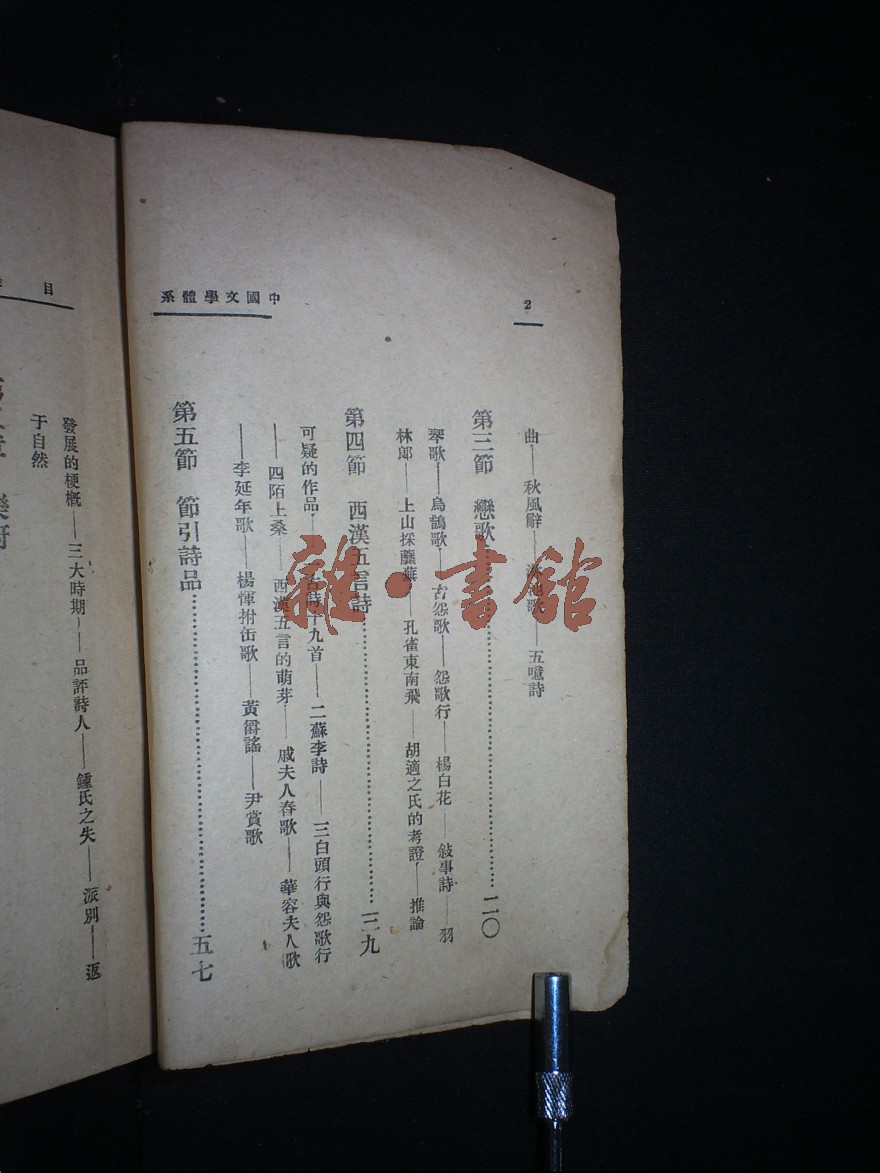 中國文學體系
2
曲——秋風辭——落葉歌——五噫詩
第三節 戀歌 二〇
琴歌——烏鵲歌——古怨歌——怨歌行——楊白花——敍事詩——羽
林郎——上山採蘼蕪——孔雀東南飛——胡適之氏的考證——推論
第四節 西漢五言詩 三九
可疑的作品——古詩十九首——二蘇李詩——三白頭行與怨歌行
——四陌上桑——西漢五言的萌芽——戚夫人舂歌——華容夫人歌
——李延年歌——楊惲拊缶歌——黃爵謠——尹賞歌
第五節 節引詩品 五七
目
發展的梗概——三大時期——品評詩人——鍾氏之失——派別——返
于自然
雜·書館